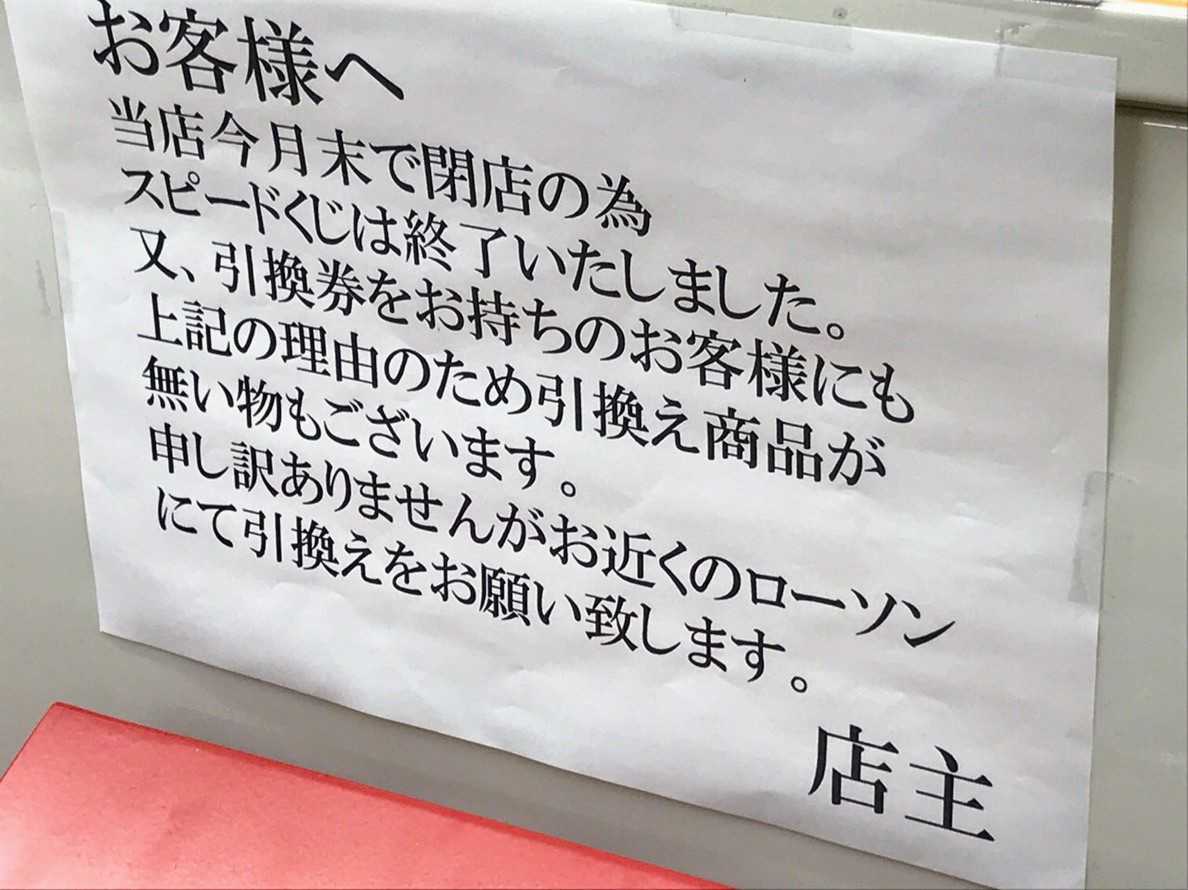 お客様へ
当店今月末で閉店の為
スピードくじは終了いたしました。
又、引換券をお持ちのお客様にも
上記の理由のため引換え商品が
無い物もございます。
申し訳ありませんがお近くのローソン
にて引換えをお願い致します。
店主